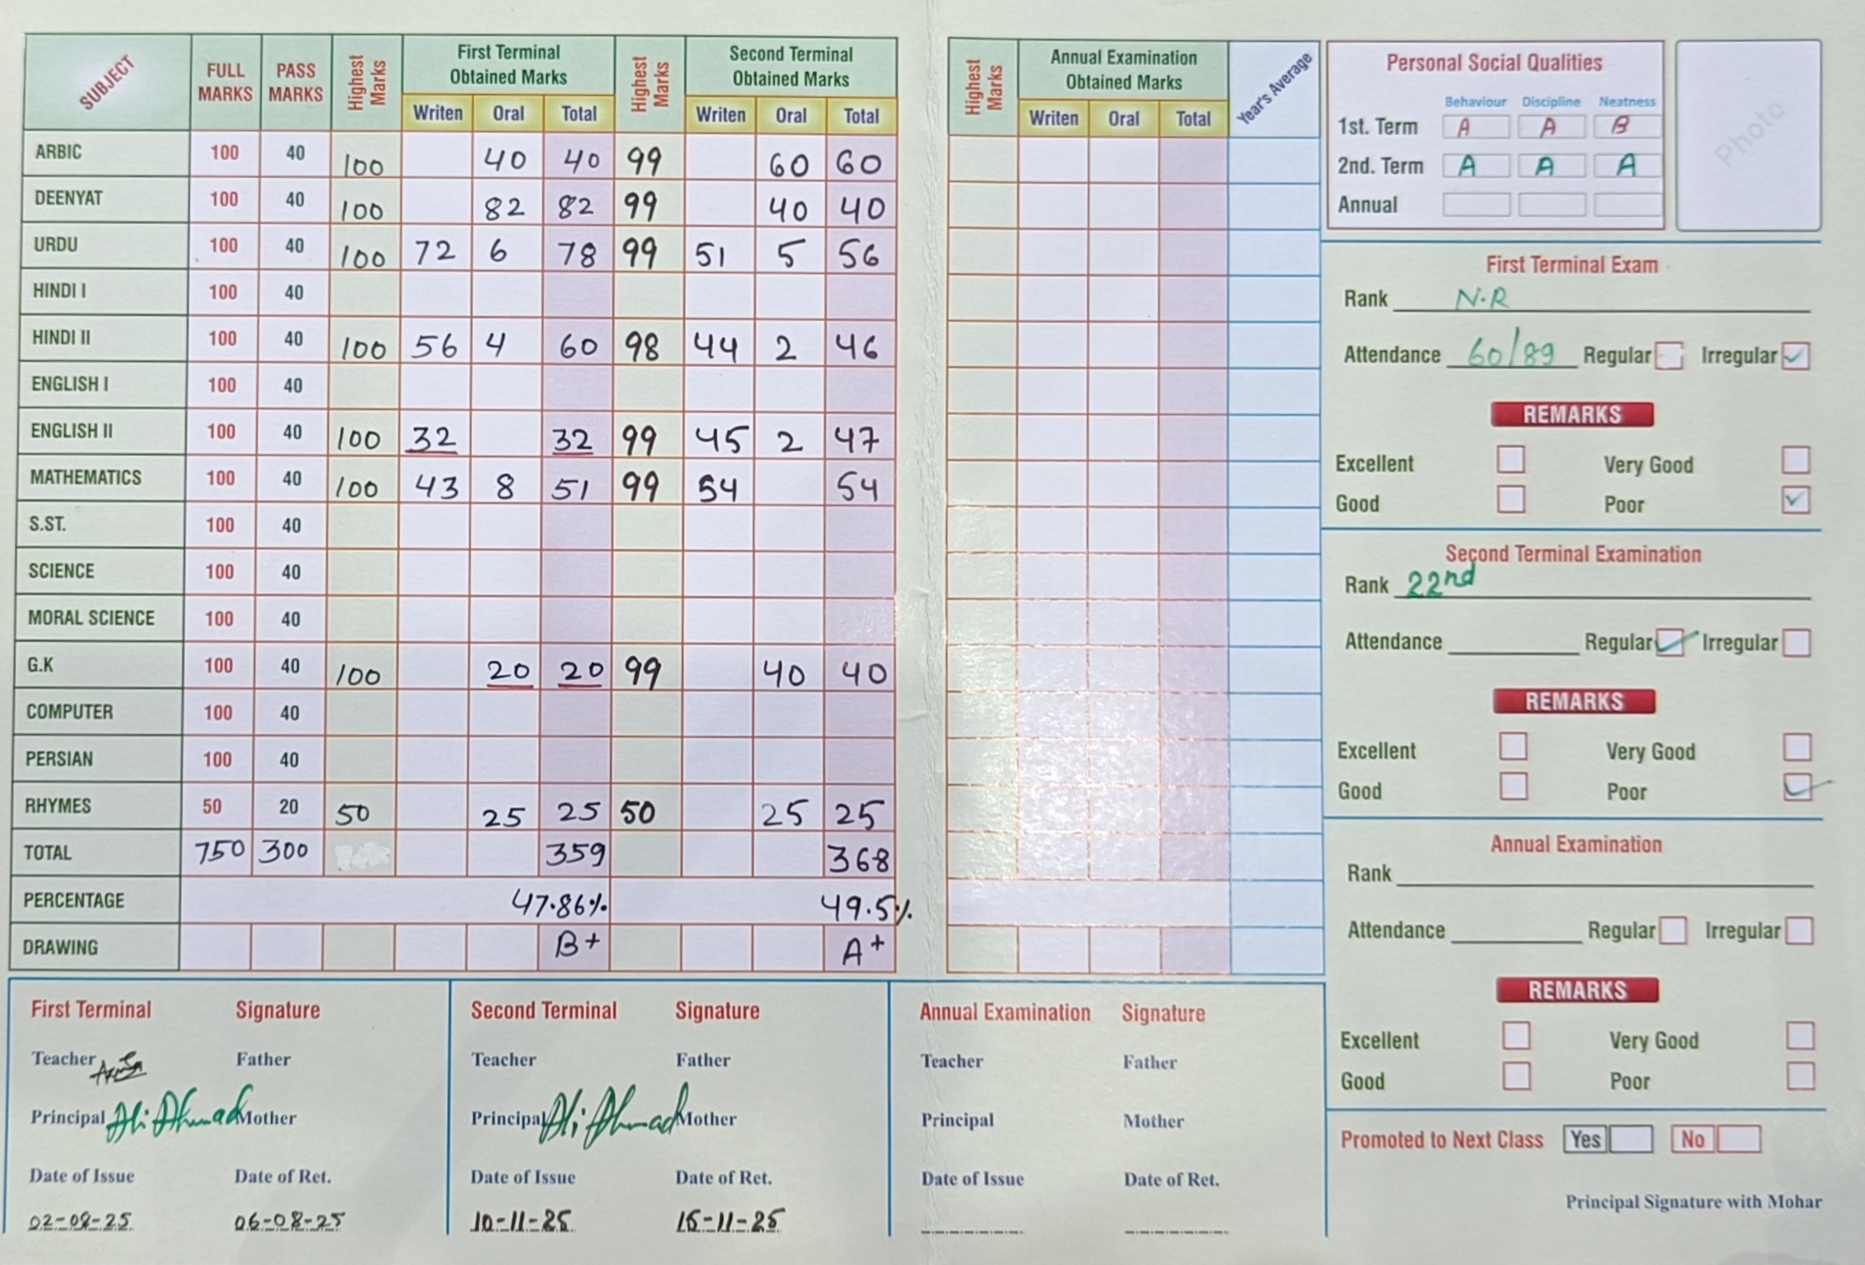 SUBJECT FULL MARKS PASS MARKS Highest Marks First Terminal Obtained Marks Highest Marks Second Terminal Obtained Marks
Writen Oral Total Writen Oral Total
ARBIC 100 40 100 40 40 99 60 60
DEENYAT 100 40 100 82 82 99 40 40
URDU 100 40 100 72 6 78 99 51 5 56
HINDI I 100 40
HINDI II 100 40 100 56 4 60 98 44 2 46
ENGLISH I 100 40
ENGLISH II 100 40 100 32 32 99 45 2 47
MATHEMATICS 100 40 100 43 8 51 99 54 54
S.ST. 100 40
SCIENCE 100 40
MORAL SCIENCE 100 40
G.K 100 40 100 20 20 99 40 40
COMPUTER 100 40
PERSIAN 100 40
RHYMES 50 20 50 25 25 50 25 25
TOTAL 750 300 359 368
PERCENTAGE 47.86% 49.5%
DRAWING B+ A+
Highest Marks Annual Examination Obtained Marks Year's Average
Writen Oral Total
Personal Social Qualities
Behaviour Discipline Neatness
1st. Term A A B
2nd. Term A A A
Annual
Photo
First Terminal Exam
Rank N.R
Attendance 60/89 Regular Irregular ✓
REMARKS
Excellent Very Good
Good Poor ✓
Second Terminal Examination
Rank 22nd
Attendance Regular ✓ Irregular
REMARKS
Excellent Very Good
Good Poor ✓
Annual Examination
Rank
Attendance Regular Irregular
REMARKS
Excellent Very Good
Good Poor
Promoted to Next Class Yes No
Principal Signature with Mohar
First Terminal Signature
Teacher Father
Principal Ali Ahmad Mother
Date of Issue Date of Ret.
02-08-25 06-08-25
Second Terminal Signature
Teacher Father
Principal Ali Ahmad Mother
Date of Issue Date of Ret.
10-11-25 15-11-25
Annual Examination Signature
Teacher Father
Principal Mother
Date of Issue Date of Ret.